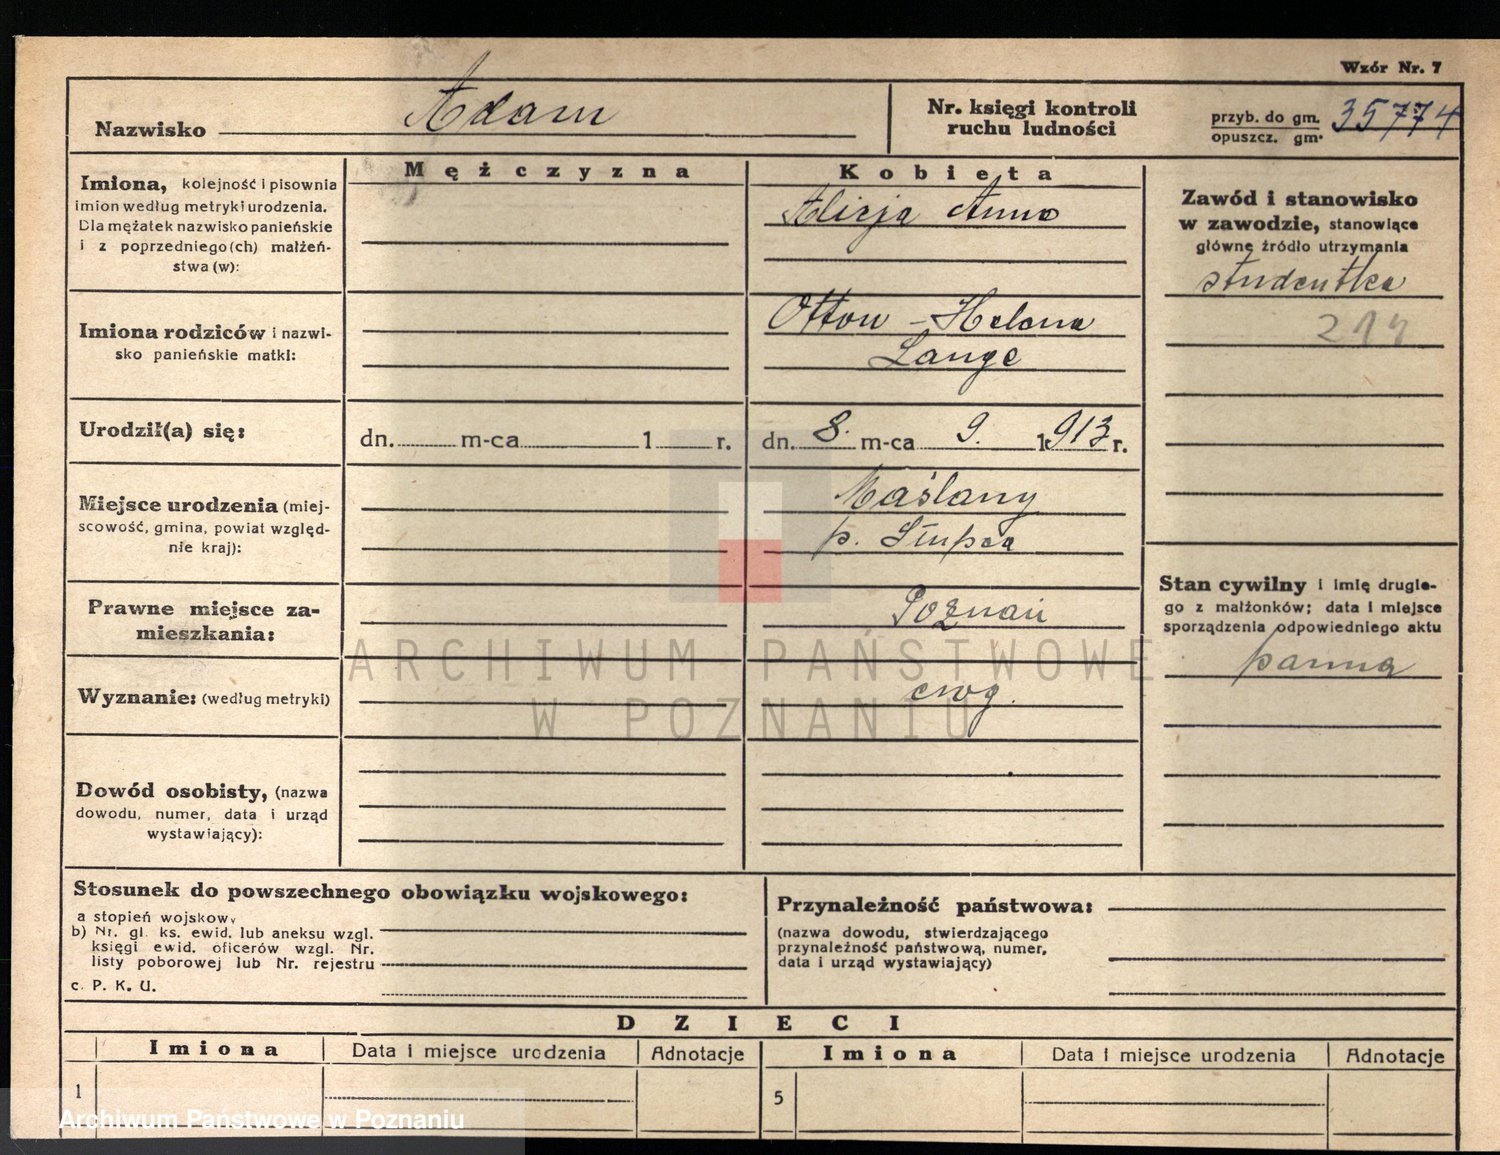 Wzór Nr. 7
Nazwisko Adam
Nr. księgi kontroli
ruchu ludności
przyb. do gm. 35774
opuszcz. gm.
Mężczyzna
Kobieta
Imiona, kolejność i pisownia
imion według metryki urodzenia.
Dla mężatek nazwisko panieńskie
i z poprzedniego (ch) małżeń-
stwa (w):
Alicja Anna
Zawód i stanowisko
w zawodzie, stanowiące
główne źródło utrzymania
studentka
214
Imiona rodziców i nazwi-
sko panieńskie matki:
Otton - Helena
Lange
Urodził(a) się:
dn. m-ca 1 r.
dn. 8. m-ca 9. 1913 r.
Miejsce urodzenia (miej-
scowość, gmina, powiat względ-
nie kraj):
Maślany
p. Słupca
Stan cywilny i imię drugie-
go z małżonków; data i miejsce
sporządzenia odpowiedniego aktu
panna
Prawne miejsce za-
mieszkania:
Poznań
ARCHIWUM PAŃSTWOWE
W POZNANIU
Wyznanie: (według metryki)
ewg.
Dowód osobisty, (nazwa
dowodu, numer, data i urząd
wystawiający):
Stosunek do powszechnego obowiązku wojskowego:
a stopień wojskowy
b) Nr. gl. ks. ewid. lub aneksu wzgl.
księgi ewid. oficerów wzgl. Nr.
listy poborowej lub Nr. rejestru
c. P. K. U.
Przynależność państwowa:
(nazwa dowodu, stwierdzającego
przynależność państwową, numer,
data i urząd wystawiający)
DZIECI
Imiona Data i miejsce urodzenia Adnotacje Imiona Data i miejsce urodzenia Adnotacje
1 5
Archiwum Państwowe w Poznaniu